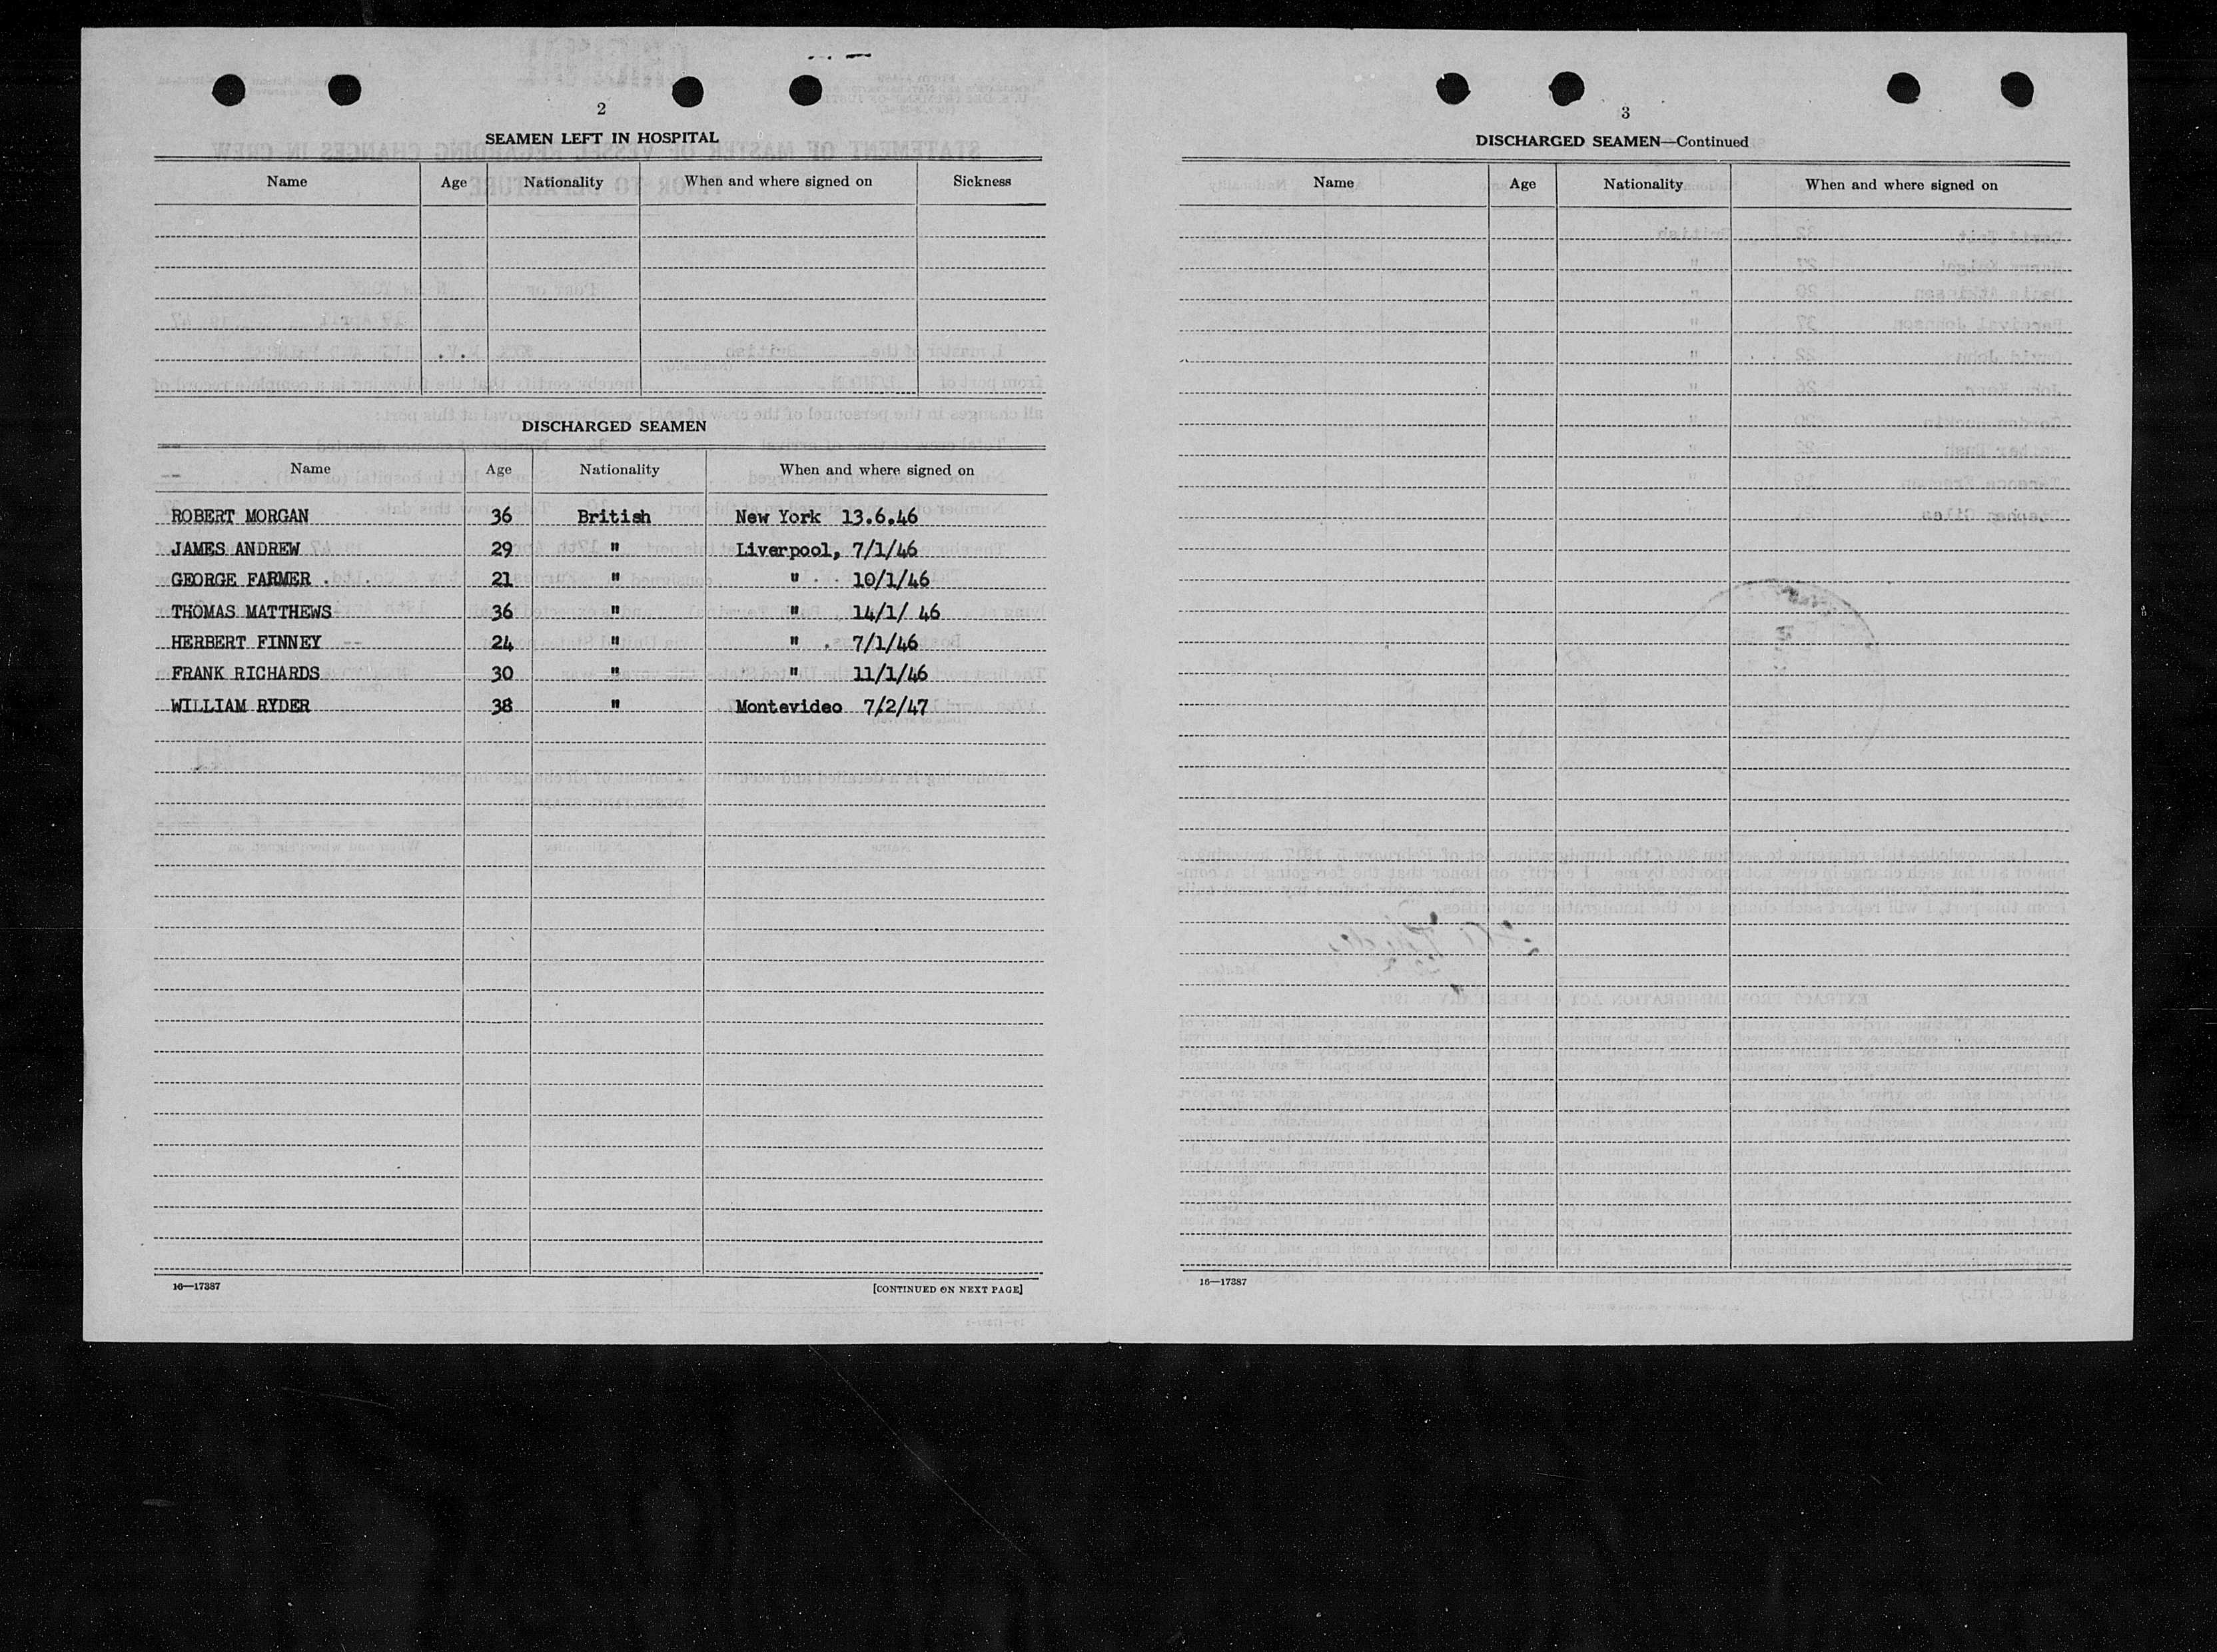 2
SEAMEN LEFT IN HOSPITAL
Name Age Nationality When and where signed on Sickness
DISCHARGED SEAMEN
Name Age Nationality When and where signed on
ROBERT MORGAN 36 British New York 13.6.46
JAMES ANDREW 29 " Liverpool, 7/1/46
GEORGE FARMER 21 " " 10/1/46
THOMAS MATTHEWS 36 " " 14/1/ 46
HERBERT FINNEY -- 24 " " 7/1/46
FRANK RICHARDS 30 " " 11/1/46
WILLIAM RYDER 38 " Montevideo 7/2/47
16—17387 [CONTINUED ON NEXT PAGE]
3
DISCHARGED SEAMEN—Continued
Name Age Nationality When and where signed on
16—17387